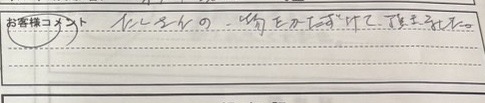 お客様コメント たくさんの 物をかたずけて 頂きました。